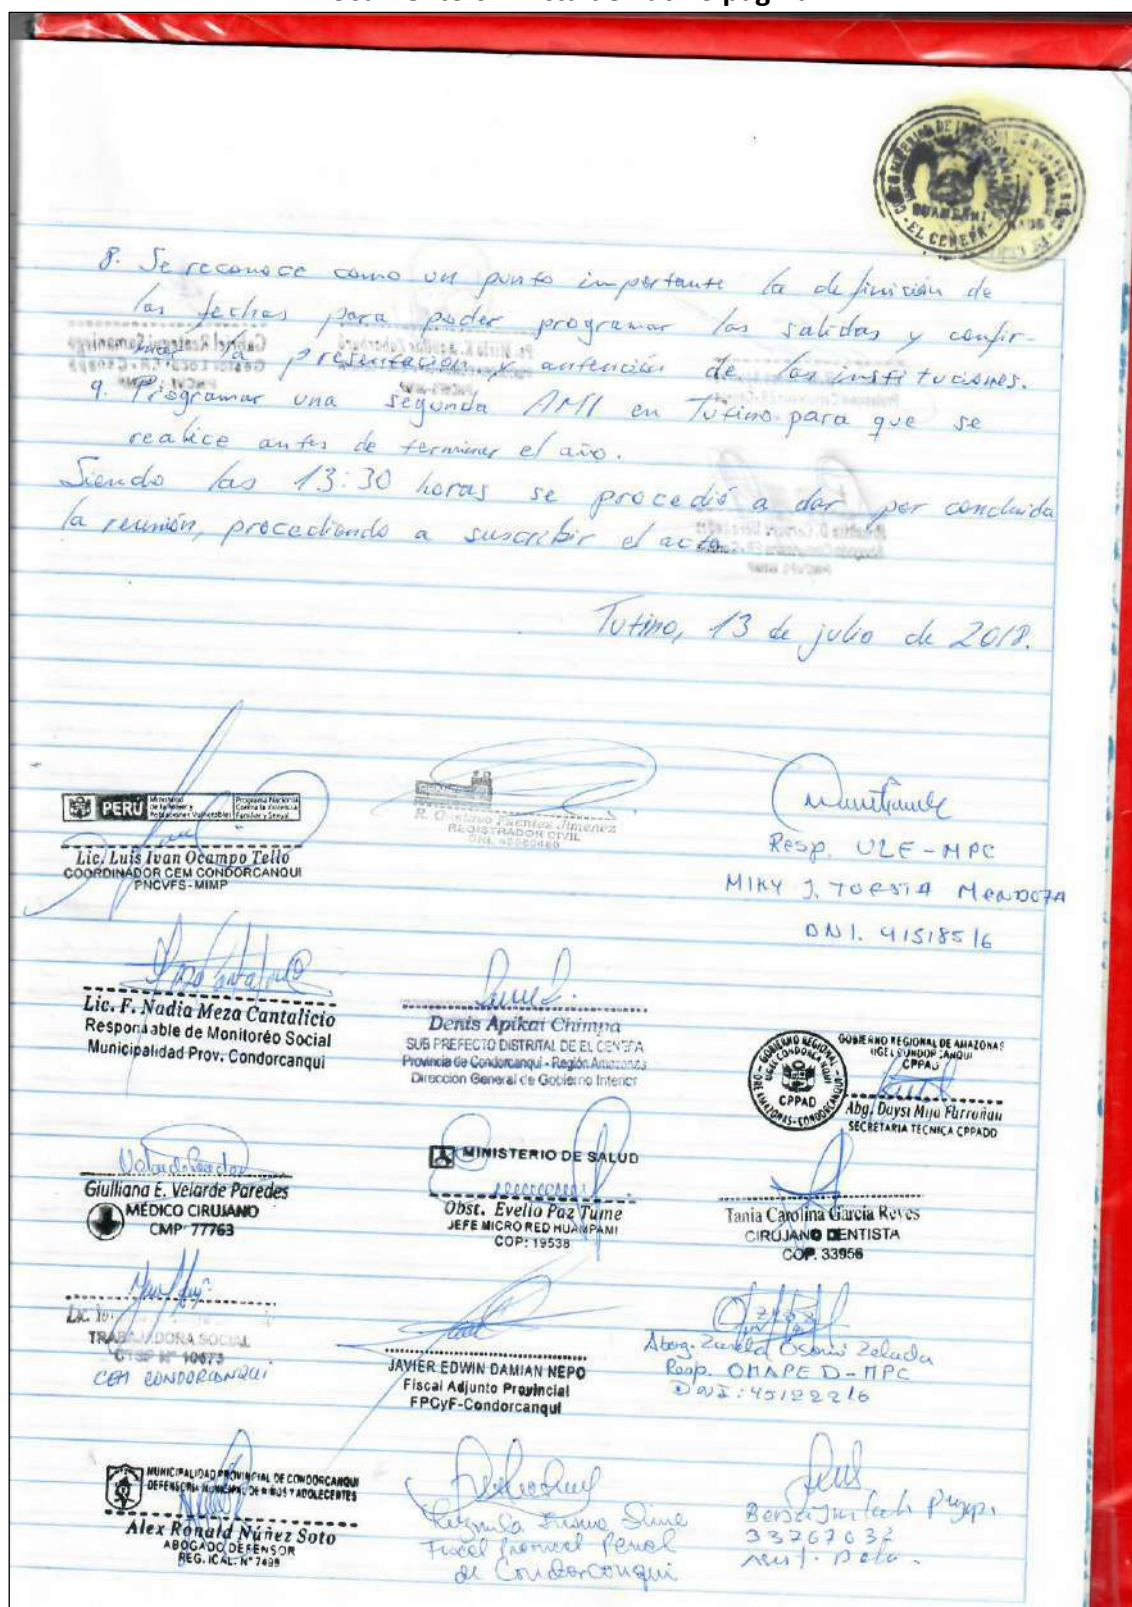 8. Se reconoce como un punto importante la definición de
las fechas para poder programar las salidas y confir-
mar la presentación y antención de las instituciones.
9. Programar una segunda AMI en Tutino para que se
realice antes de terminar el año.
Siendo las 13:30 horas se procedió a dar por concluida
la reunión, procediendo a suscribir el acta.
Tutino, 13 de julio de 2018.
PERÚ Ministerio de la Mujer y Poblaciones Vulnerables Programa Nacional Contra la Violencia Familiar y Sexual
Lic. Luis Ivan Ocampo Tello
COORDINADOR CEM CONDORCANQUI
PNCVFS - MIMP
R. Gustavo Fuentes Jimenez
REGISTRADOR CIVIL
Resp. ULE - MPC
MIKY J.
DNI. 41518516
Lic. F. Nadia Meza Cantalicio
Responsable de Monitoréo Social
Municipalidad Prov. Condorcanqui
Denis Apikai Chimpa
SUB PREFECTO DISTRITAL DE EL CENEPA
Provincia de Condorcanqui - Región Amazonas
Dirección General de Gobierno Interior
GOBIERNO REGIONAL DE AMAZONAS
UGEL CONDORCANQUI
CPPAD
Abg. Daysi Mija
SECRETARIA TECNICA CPPADD
Giulliana E. Velarde Paredes
MÉDICO CIRUJANO
CMP 77763
MINISTERIO DE SALUD
Obst. Evelio Paz Tume
JEFE MICRO RED HUAMPAMI
COP: 19538
Tania Carolina García Reyes
CIRUJANO DENTISTA
COP. 33956
Lic.
TRABAJADORA SOCIAL
CTSP Nº 10673
CEM CONDORCANQUI
JAVIER EDWIN DAMIAN NEPO
Fiscal Adjunto Provincial
FPCyF-Condorcanqui
Abog. Zelada
Resp. OMAPED - MPC
DNI: 45122216
MUNICIPALIDAD PROVINCIAL DE CONDORCANQUI
DEFENSORIA MUNICIPAL DE NIÑOS Y ADOLECENTES
Alex Ronald Núñez Soto
ABOGADO DEFENSOR
REG. ICAL. Nº 7499
Fiscal Provincial Penal
de Condorcanqui
33767032